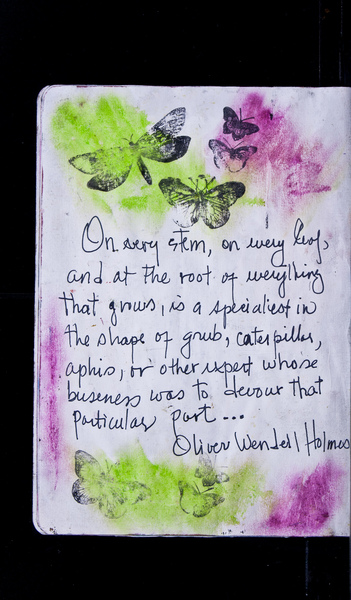 On every stem, on every leaf,
and at the root of everything
that grows, is a specialist in
the shape of grub, caterpillar,
aphis, or other expert whose
buseness was to devour that
particular part...
Oliver Wendell Holmes